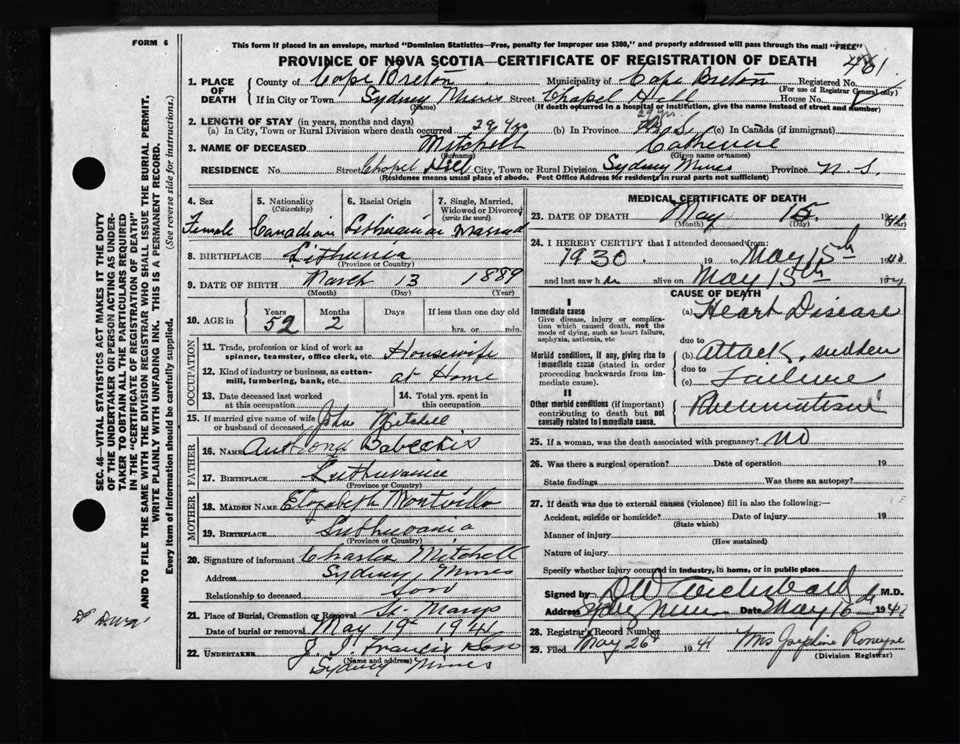 FORM 6
This form if placed in an envelope, marked "Dominion Statistics—Free, penalty for improper use $300," and properly addressed will pass through the mail "FREE"
PROVINCE OF NOVA SCOTIA—CERTIFICATE OF REGISTRATION OF DEATH
1. PLACE OF DEATH County of Cape Breton Municipality of Cape Breton Registered No.
(For use of Registrar General only)
If in City or Town Sydney Mines Street Chapel Hill House No.
(Name) (If death occurred in a hospital or institution, give the name instead of street and number)
2. LENGTH OF STAY (in years, months and days)
(a) In City, Town or Rural Division where death occurred 29 yrs (b) In Province 29 yrs (c) In Canada (if immigrant)
3. NAME OF DECEASED Mitchell Catherine
(Surname) (Given name or names)
RESIDENCE No. Street Chapel Hill City, Town or Rural Division Sydney Mines Province N.S.
(Residence means usual place of abode. Post Office Address for residents in rural parts not sufficient)
4. Sex Female
5. Nationality (Citizenship) Canadian
6. Racial Origin Lithuanian
7. Single, Married, Widowed or Divorced (write the word) Married
8. BIRTHPLACE Lithunia
(Province or Country)
9. DATE OF BIRTH March 3 1889
(Month) (Day) (Year)
10. AGE in Years 52 Months 2 Days If less than one day old hrs. or min.
OCCUPATION
11. Trade, profession or kind of work as spinner, teamster, office clerk, etc. Housewife
12. Kind of industry or business, as cotton-mill, lumbering, bank, etc. at Home
13. Date deceased last worked at this occupation
14. Total yrs. spent in this occupation
15. If married give name of wife or husband of deceased John Mitchell
FATHER
16. NAME
17. BIRTHPLACE
(Province or Country)
MOTHER
18. MAIDEN NAME Elizabeth
19. BIRTHPLACE Luthuvania
(Province or Country)
20. Signature of informant Charles Mitchell
Address Sydney Mines
Relationship to deceased Son
21. Place of Burial, Cremation or Removal St. Marys
Date of burial or removal May 19th 1941
22. UNDERTAKER J. J. Francis
(Name and address)
Sydney Mines
MEDICAL CERTIFICATE OF DEATH
23. DATE OF DEATH May 15
(Month) (Day) (Year)
24. I HEREBY CERTIFY that I attended deceased from:
1930. 19 to May 15th
and last saw h alive on May 15th
CAUSE OF DEATH
I
Immediate cause
Give disease, injury or complication which caused death, not the mode of dying, such as heart failure, asphyxia, asthenia, etc
(a) Heart Disease
due to
Morbid conditions, if any, giving rise to immediate cause (stated in order proceeding backwards from immediate cause).
(b) Attack, sudden
due to
(c) Failure
II
Other morbid conditions (if important) contributing to death but not causally related to immediate cause.
Rheumatism
25. If a woman, was the death associated with pregnancy? no
26. Was there a surgical operation? Date of operation 19
State findings Was there an autopsy?
27. If death was due to external causes (violence) fill in also the following:—
Accident, suicide or homicide? Date of injury 19
(State which)
Manner of injury
(How sustained)
Nature of injury
Specify whether injury occurred in industry, in home, or in public place
Signed by D W Archibald M.D.
Address Date May 16 194
28. Registrar's Record Number
29. Filed May 26 1941 Mrs Josephine
(Division Registrar)
SEC. 46—VITAL STATISTICS ACT MAKES IT THE DUTY OF THE UNDERTAKER OR PERSON ACTING AS UNDERTAKER TO OBTAIN ALL THE PARTICULARS REQUIRED IN THE "CERTIFICATE OF REGISTRATION OF DEATH" AND TO FILE THE SAME WITH THE DIVISION REGISTRAR WHO SHALL ISSUE THE BURIAL PERMIT.
WRITE PLAINLY WITH UNFADING INK. THIS IS A PERMANENT RECORD.
Every item of information should be carefully supplied. (See reverse side for instructions.)